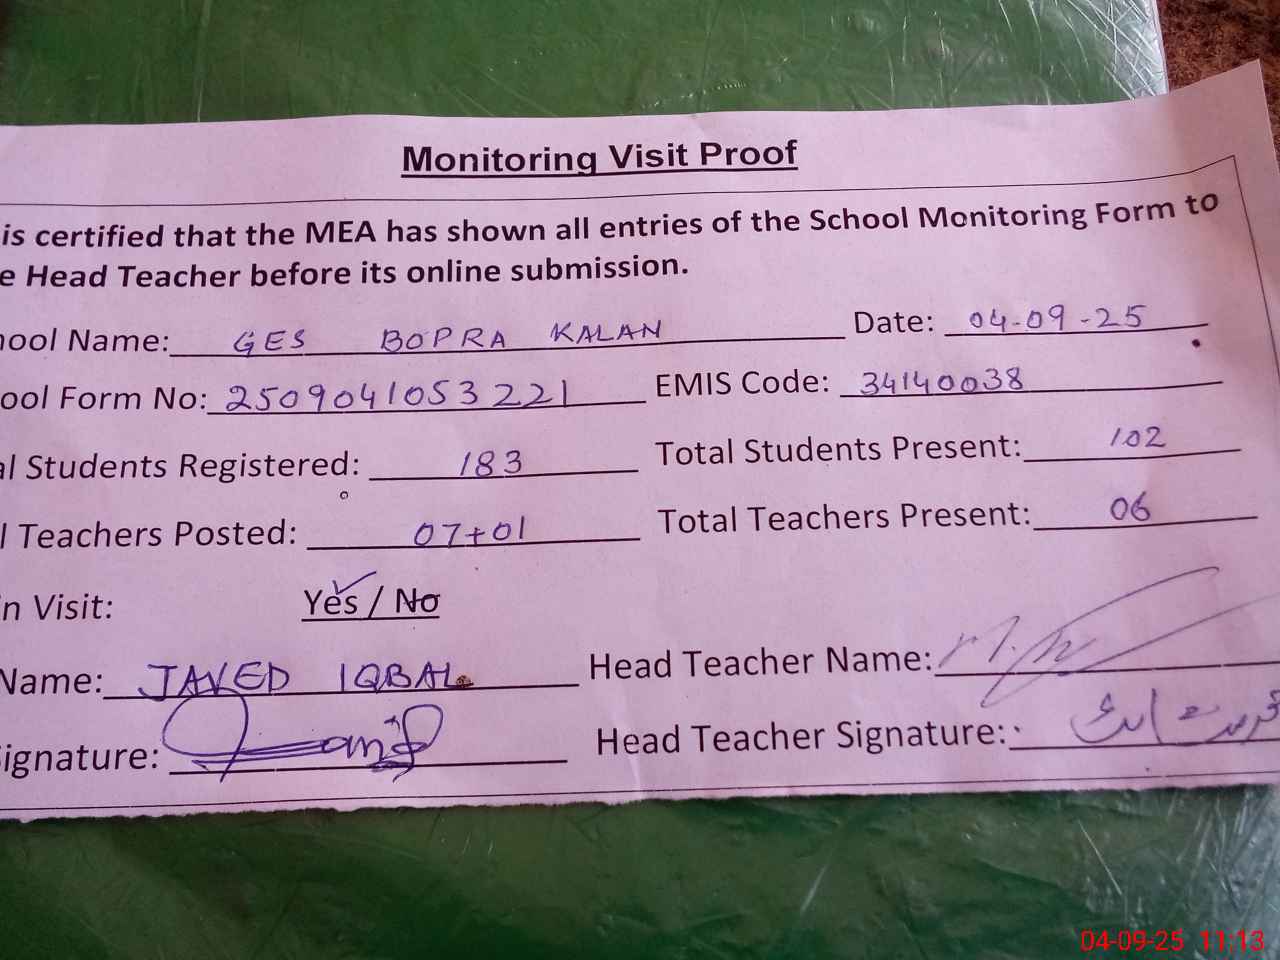 Monitoring Visit Proof
is certified that the MEA has shown all entries of the School Monitoring Form to
e Head Teacher before its online submission.
hool Name: GES BOPRA KALAN Date: 04-09-25
ool Form No: 2509041053221 EMIS Code: 34140038
al Students Registered: 183 Total Students Present: 102
l Teachers Posted: 07+01 Total Teachers Present: 06
n Visit: Yes / No
Name: JAVED IQBAL Head Teacher Name:
ignature: Head Teacher Signature:
04-09-25 11:13